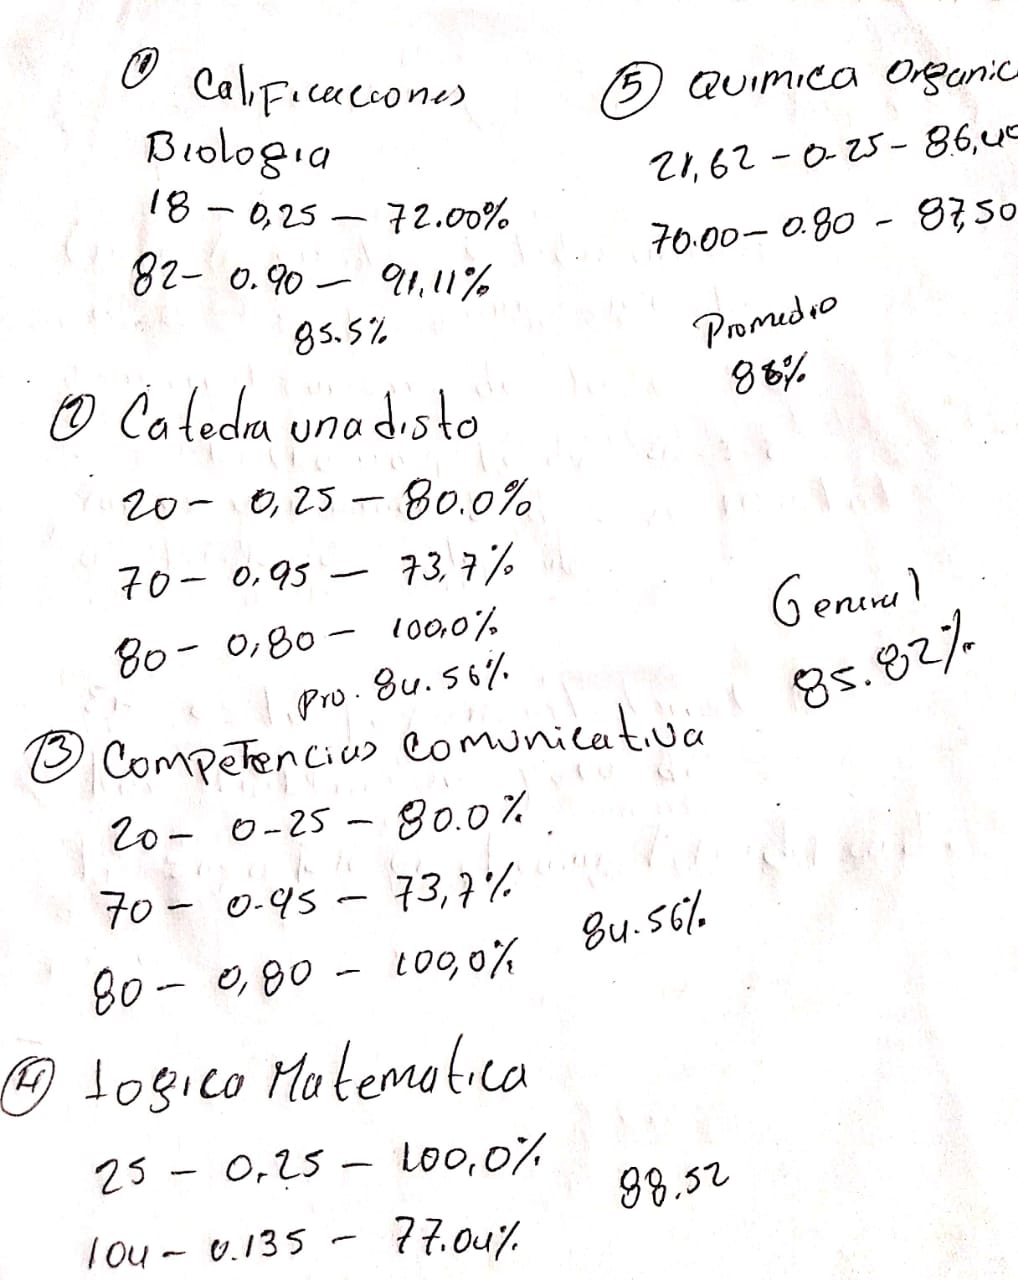 ① Calificaciones
Biologia
18 – 0,25 – 72.00%
82 – 0.90 – 91,11%
85.5%
② Catedra unadista
20 – 0,25 – 80.0%
70 – 0.95 – 73,7%
80 – 0,80 – 100,0%
Pro. 84.56%
③ Competencias Comunicativa
20 – 0-25 – 80.0%
70 – 0.95 – 73,7%
80 – 0,80 – 100,0%
84.56%
④ Logica Matematica
25 – 0.25 – 100,0%
104 – 0.135 – 77.04%
88.52
⑤ Quimica Organic
21,62 – 0-25 – 86,4
70.00 – 0.80 – 87,50
Promedio
86%
General
85.82%